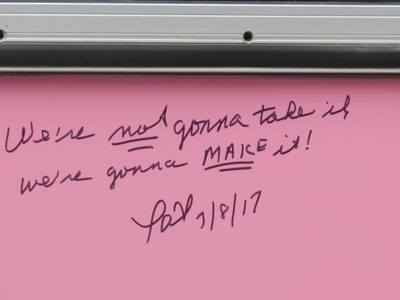 We're not gonna take it
we're gonna MAKE it!
Pat 7/8/17